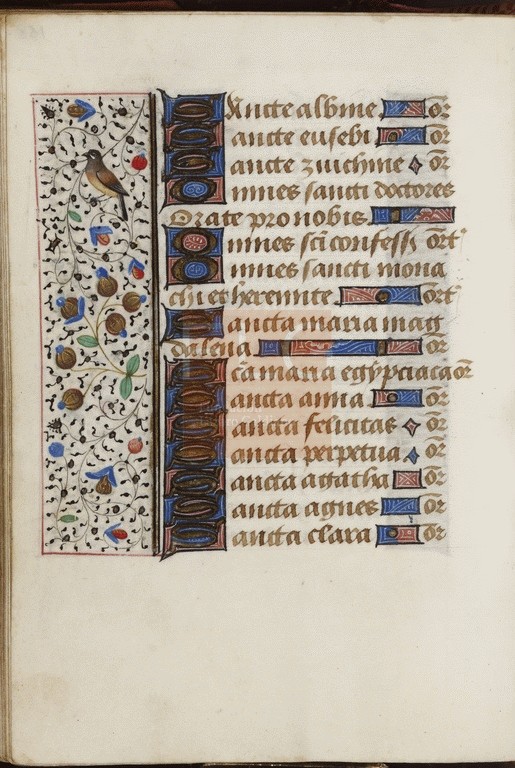 Sancte albine or
Sancte eusebi or
Sancte zuichine or
Omnes sancti doctores
Orate pro nobis
Omnes sci confess ort
Omnes sancti mona
chi et heremite ort
Sancta maria mag
dalena or
Sca maria egypciaca or
Sancta anna or
Sancta felicitas or
Sancta perpetua or
Sancta agatha or
Sancta agnes or
Sancta clara or